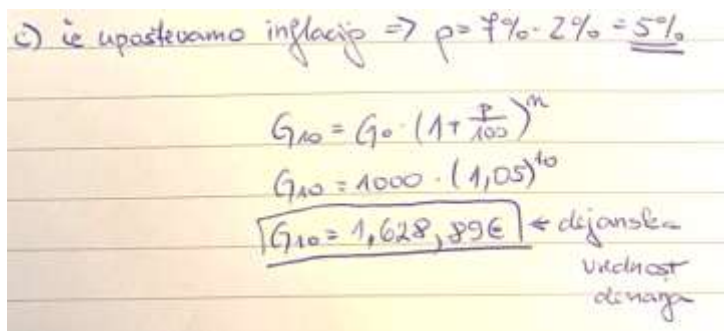 c) če upoštevamo inflacijo => p = 7% - 2% = 5%
G₁₀ = G₀ · (1 + p/100)ⁿ
G₁₀ = 1000 · (1,05)¹⁰
G₁₀ = 1,628,89€ ← dejanska
vrednost
denarja